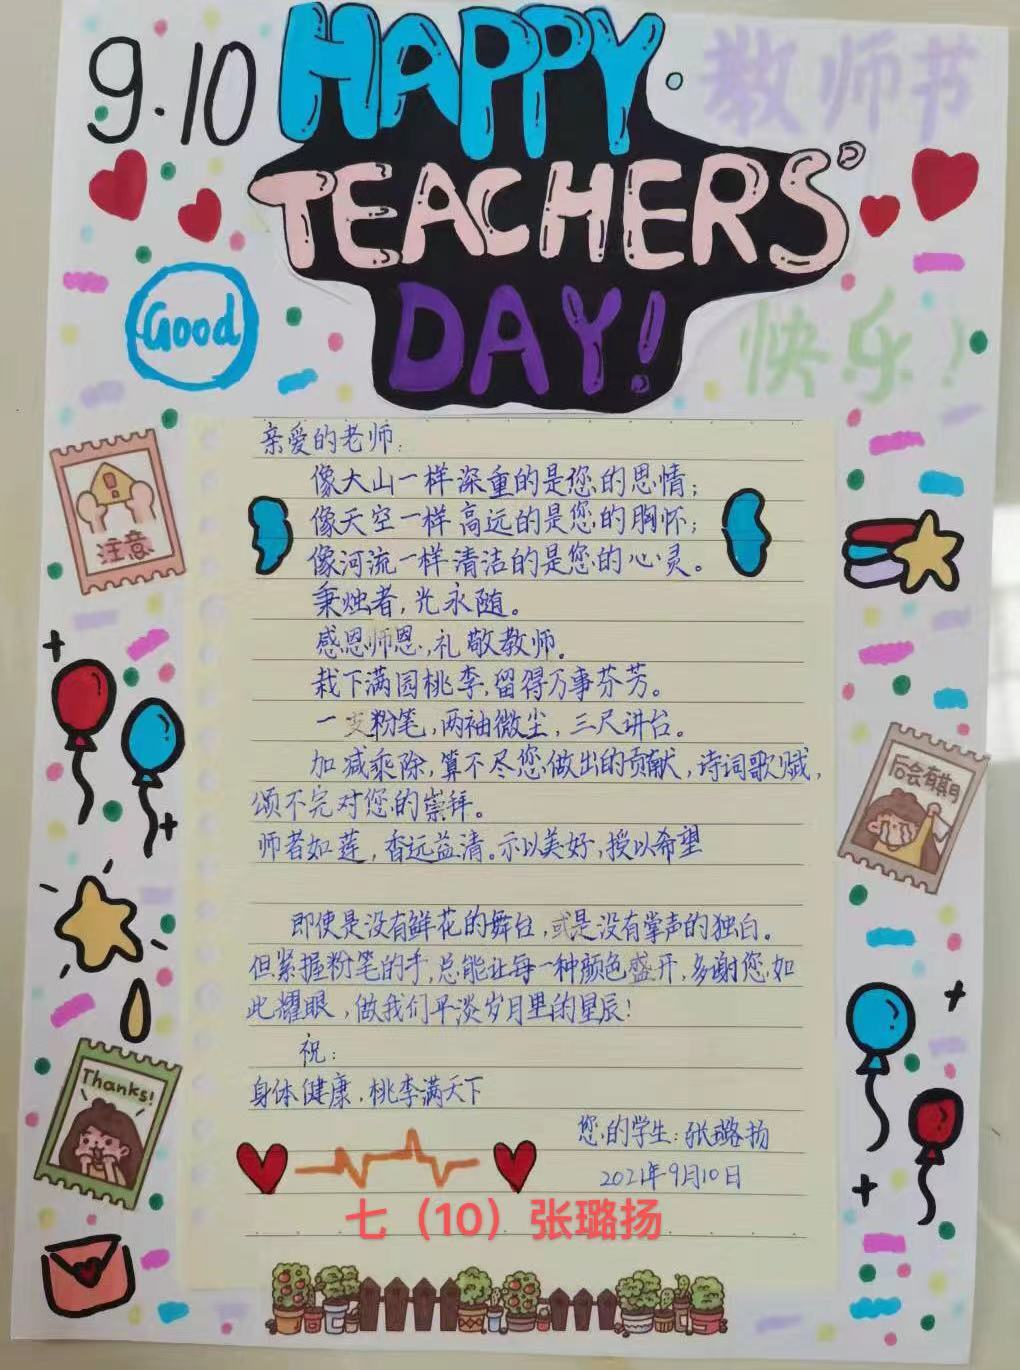 9.10
HAPPY
教师节
TEACHERS'
DAY!
快乐!
Good
亲爱的老师:
像大山一样深重的是您的恩情;
像天空一样高远的是您的胸怀;
像河流一样清洁的是您的心灵。
秉烛者,光永随。
感恩师恩,礼敬教师。
栽下满园桃李,留得万事芬芳。
一支粉笔,两袖微尘,三尺讲台。
加减乘除,算不尽您做出的贡献,诗词歌赋,
颂不完对您的崇拜。
师者如莲,香远益清。示以美好,授以希望
即使是没有鲜花的舞台,或是没有掌声的独白。
但紧握粉笔的手,总能让每一种颜色盛开,多谢您如
此耀眼,做我们平淡岁月里的星辰!
祝:
身体健康,桃李满天下
您的学生:张璐扬
2021年9月10日
七(10)张璐扬
注意
后会有期
Thanks!